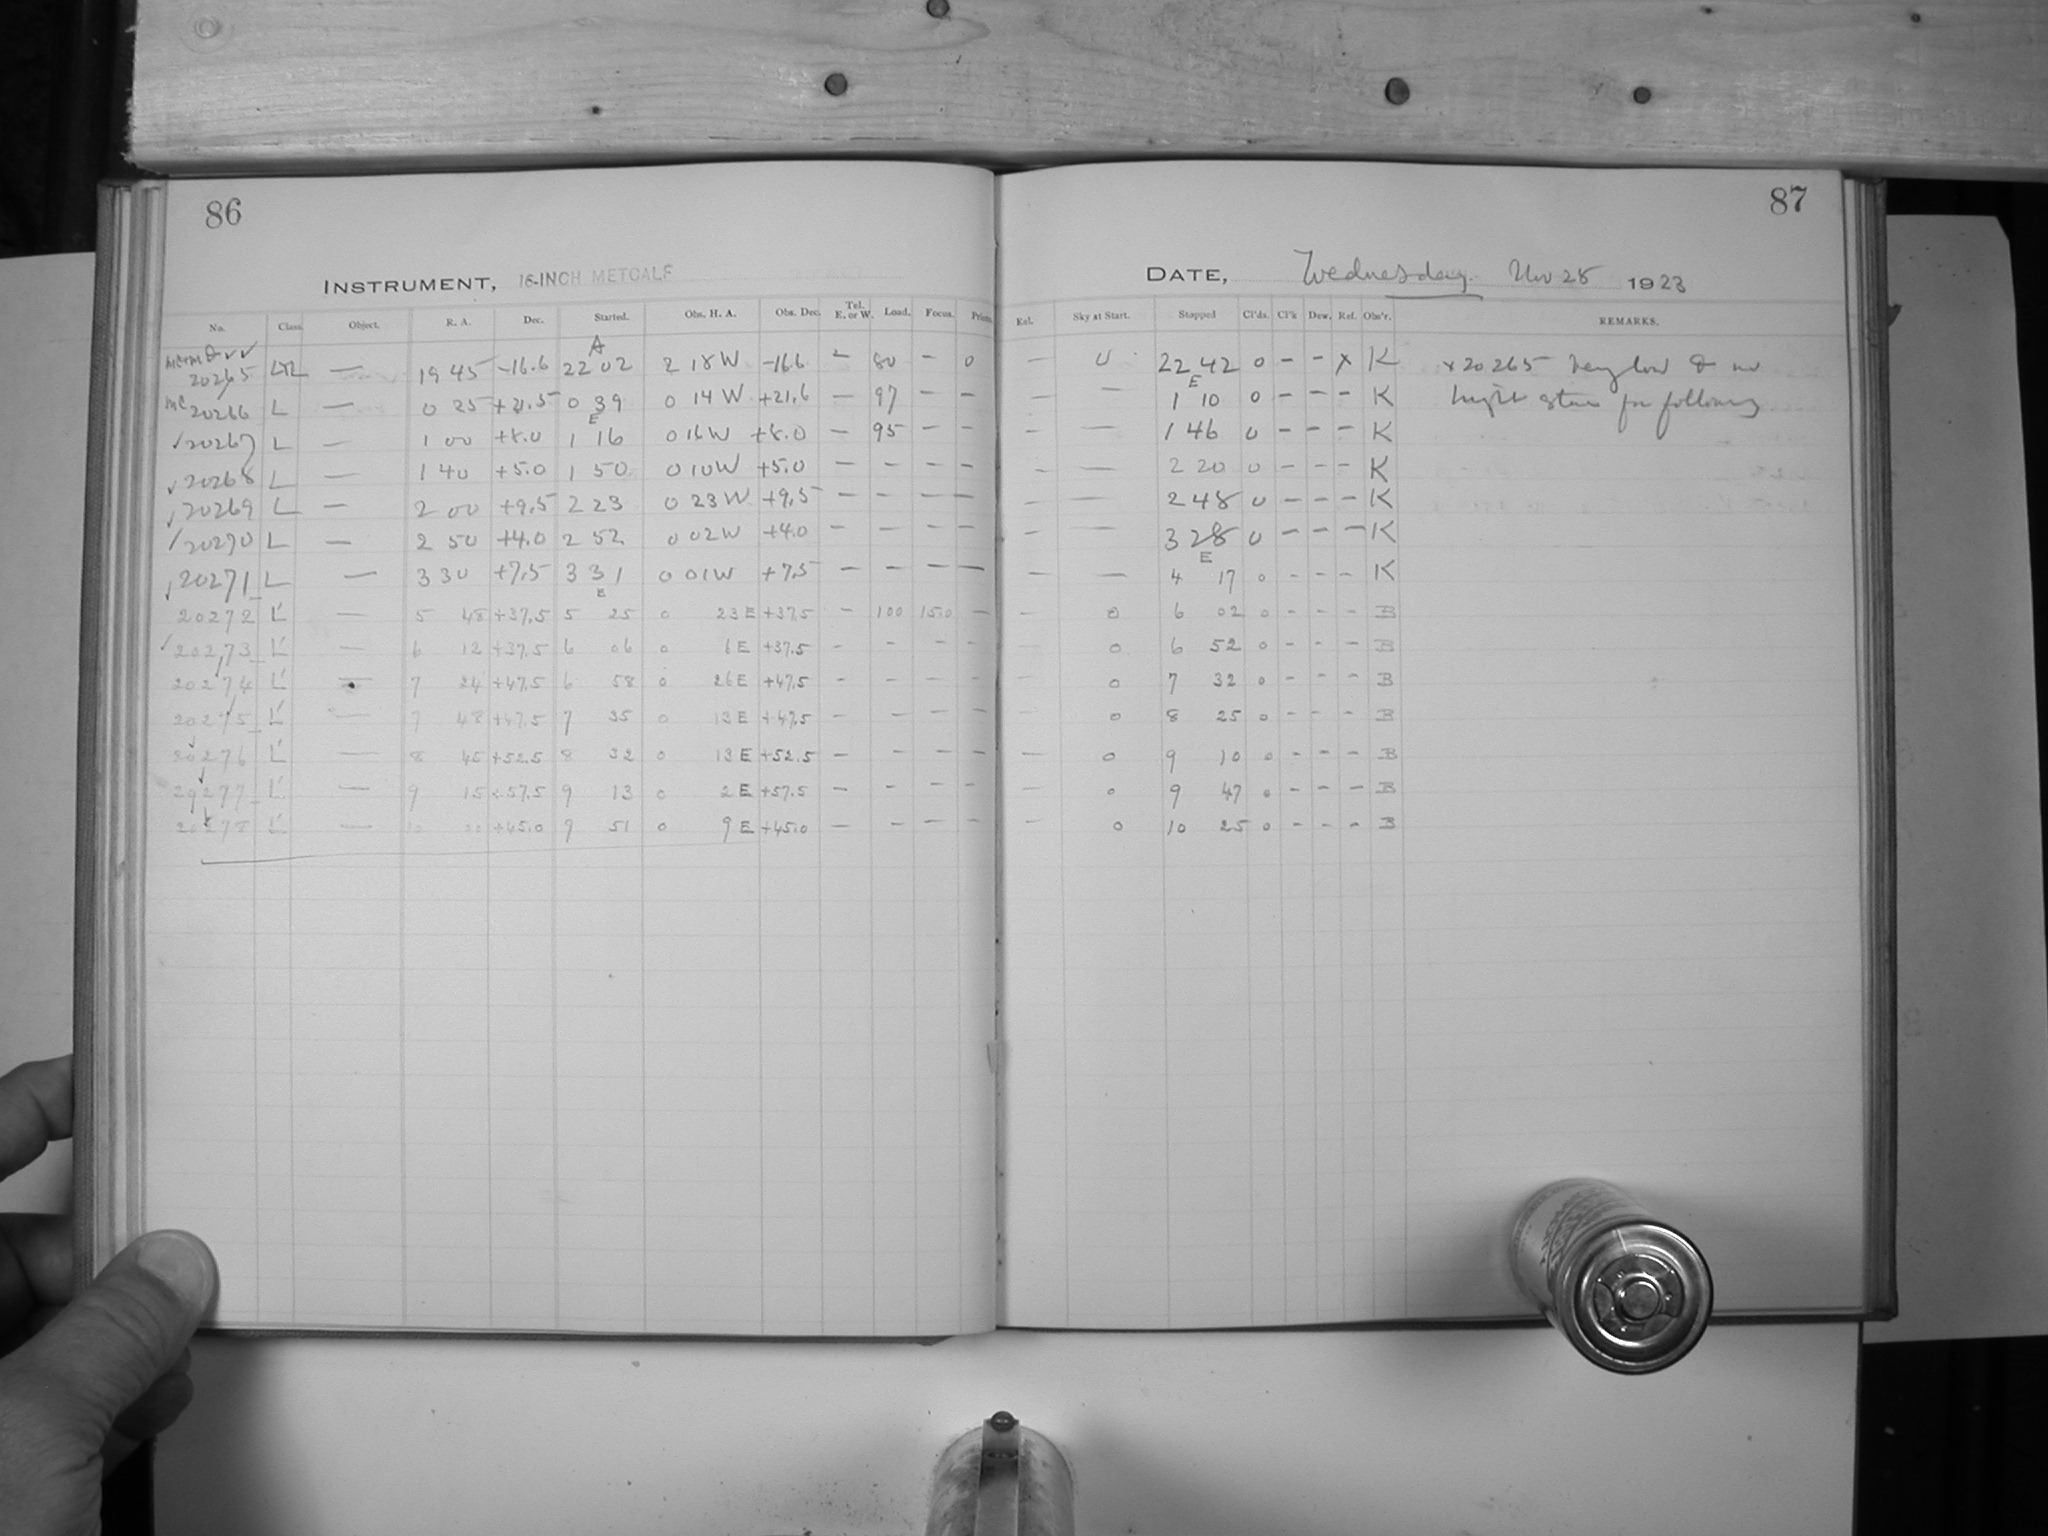 86
87
INSTRUMENT, 16-INCH METCALF
DATE, Wednesday. Nov 28 1923
No. Class. Object. R. A. Dec. Started. Obs. H. A. Obs. Dec. Tel. E. or W. Load. Focus. Prism. Ext. Sky at Start. Stopped Cl'ds. Cl'k Dew. Ref. Obs'r. REMARKS.
A
20265 — 19 45 -16.6 22 02 2 18 W -16.6 – 80 – 0 — 0 22 42 0 – – x K x 20265 very low & no
MC 20266 L — 0 25 +21.5 0 39 0 14 W +21.6 – 97 – – — — 1 10 0 – – – K bright stars for following
✓20267 L — 1 00 +8.0 1 16 0 16 W +8.0 – 95 – – — — 1 46 0 – – – K
✓20268 L — 1 40 +5.0 1 50 0 10 W +5.0 – – – – — — 2 20 0 – – – K
✓20269 L — 2 00 +9.5 2 23 0 23 W +9.5 – – – – — — 2 48 0 – – – K
✓20270 L — 2 50 +4.0 2 52 0 02 W +4.0 – – – – — — 3 28 0 – – – K
✓20271 L — 3 30 +7.5 3 31 0 01 W +7.5 – – – – — — 4 17 0 – – – K
20272 L' — 5 48 +37.5 5 25 0 23 E +37.5 – 100 15.0 – — 0 6 02 0 – – – B
✓20273 L' — 6 12 +37.5 6 06 0 6 E +37.5 – – – – — 0 6 52 0 – – – B
20274 L' — 7 24 +47.5 6 58 0 26 E +47.5 – – – – — 0 7 32 0 – – – B
20275 L' — 7 48 +47.5 7 35 0 13 E +47.5 – – – – — 0 8 25 0 – – – B
20276 L' — 8 45 +52.5 8 32 0 13 E +52.5 – – – – — 0 9 10 0 – – – B
20277 L' — 9 15 +57.5 9 13 0 2 E +57.5 – – – – — 0 9 47 0 – – – B
20278 L' — 10 +45.0 9 51 0 9 E +45.0 – – – – — 0 10 25 0 – – – B